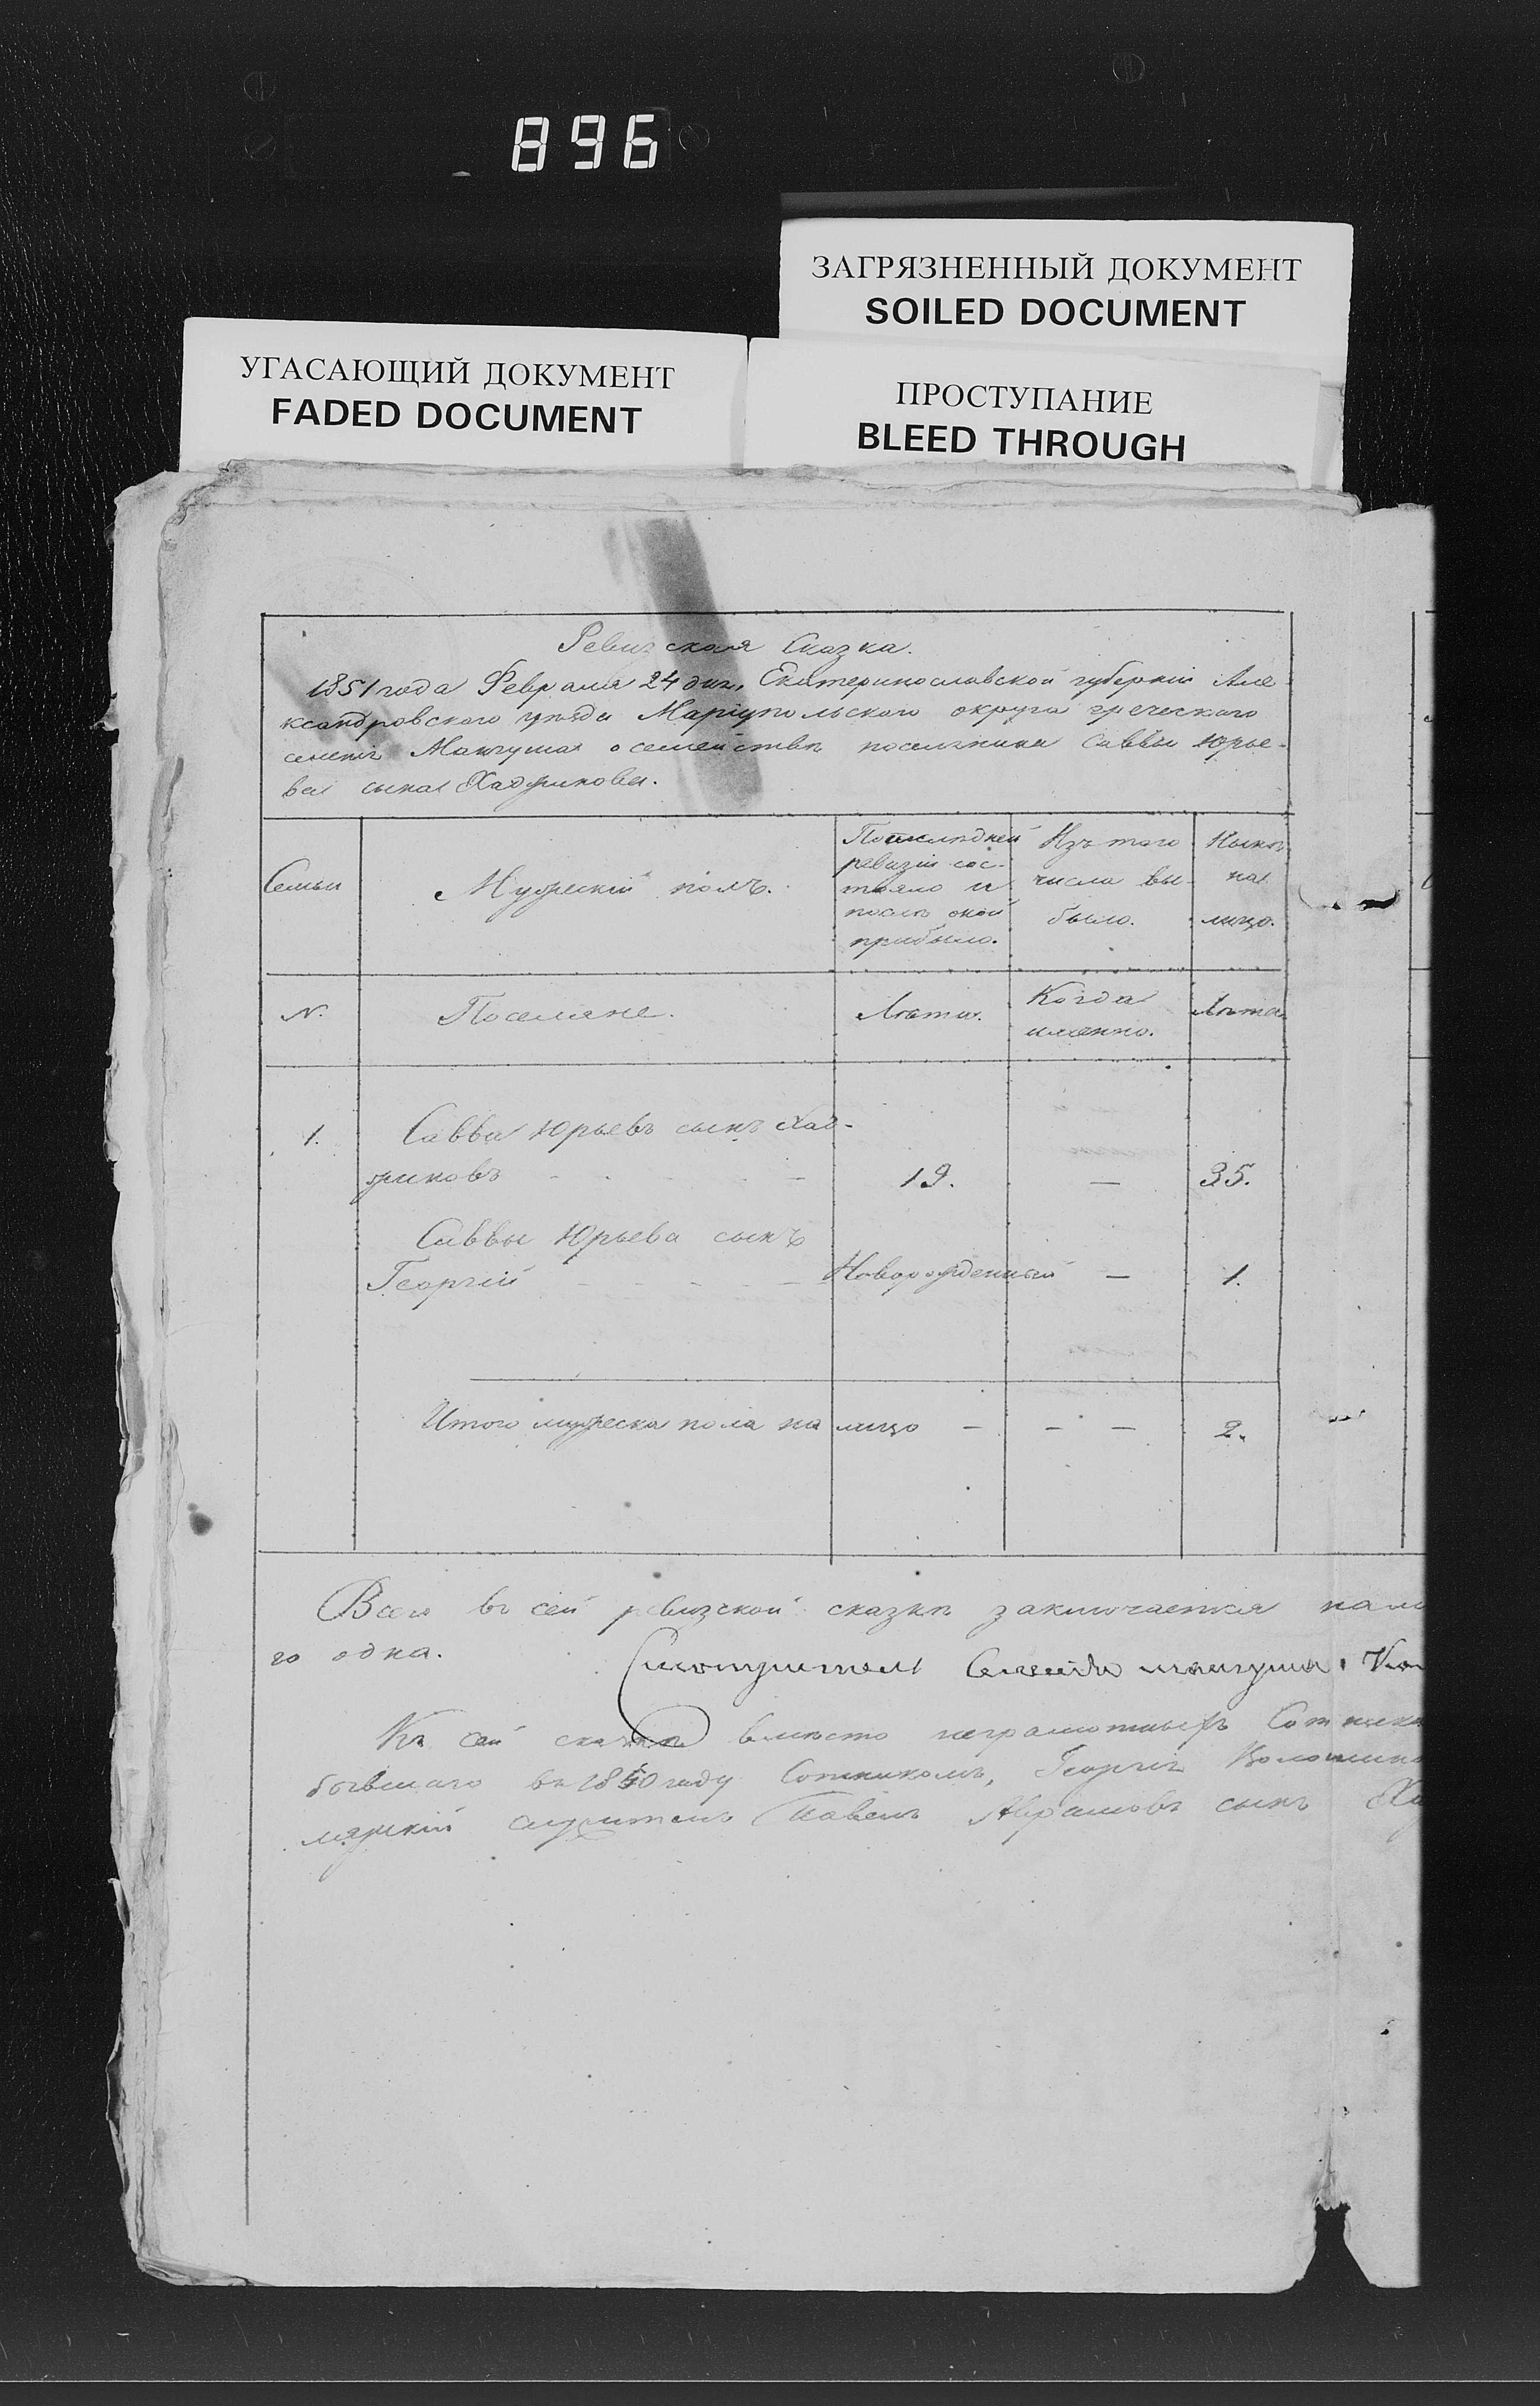 896
ЗАГРЯЗНЕННЫЙ ДОКУМЕНТ
SOILED DOCUMENT
УГАСАЮЩИЙ ДОКУМЕНТ
FADED DOCUMENT
ПРОСТУПАНИЕ
BLEED THROUGH
Ревизская Сказка.
1851 года Февраля 24 дня, Екатеринославской губерніи Але
ксандровского уѣзда Маріупольского округа греческого
селенія Мангуша о семействѣ поселянина Саввы Юрье-
ва сына Хаджинова.
Семьи
Мужескій полъ.
По последней
ревизіи сос-
тояло и
послѣ оной
прибыло.
Изъ того
числа вы-
было.
Нынѣ
на
лицо.
N.
Поселяне.
Лѣта.
Когда
именно.
Лѣта
1. Савва Юрьевъ сынъ Хад-
жиновъ - - - 19. — 35.
Саввы Юрьева сынъ
Георгій - - - - - Новорожденный — 1.
Итого мужеска пола на лицо — — — 2.
Всего въ сей ревизской сказкѣ заключается
го одна.
Смотритель Селенія мангуша
Къ сей сказкѣ вместо неграмотныхъ
бывшаго въ 1850 году Сотникомъ, Георгія
служитель Павелъ Аврамовъ сынъ